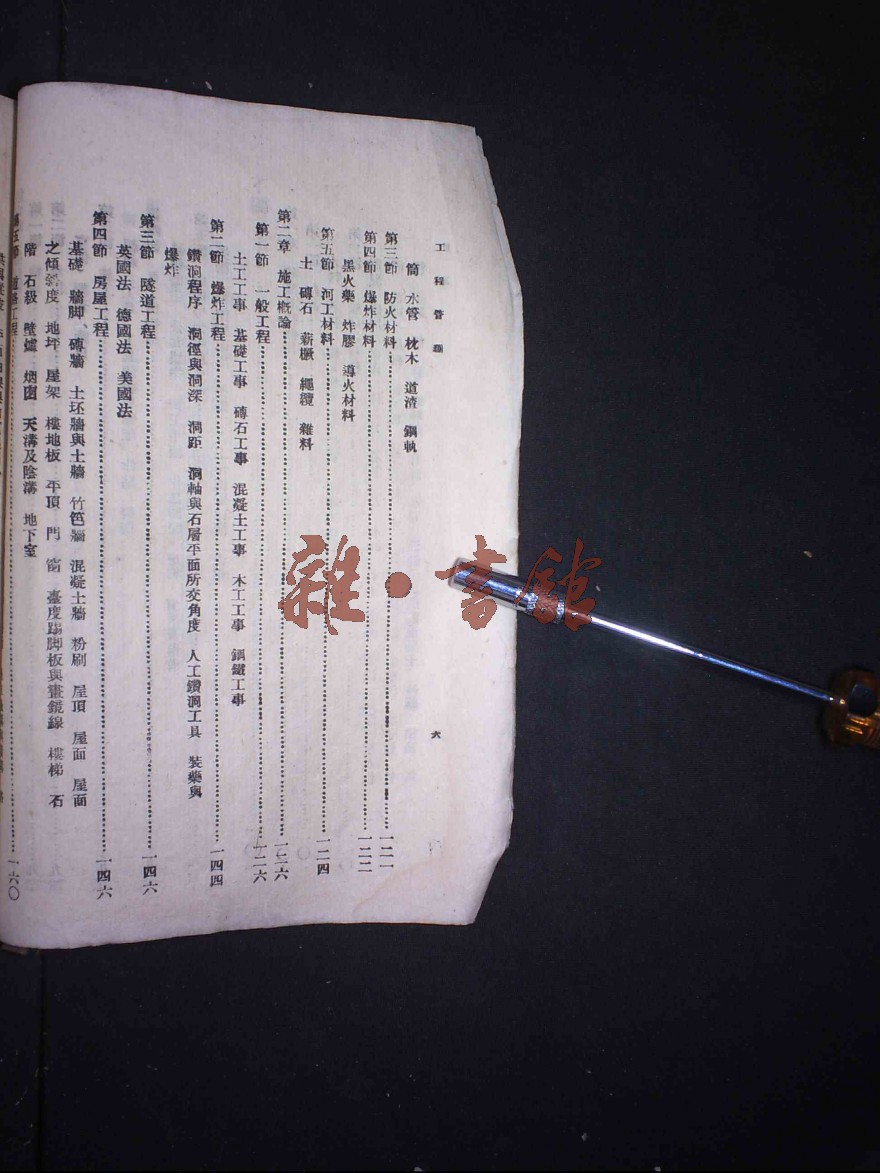 工程管理
六
筒 水管 枕木 道渣 鋼軌
第三節 防火材料……一二一
第四節 爆炸材料……一二二
黑火藥 炸膠 導火材料
第五節 河工材料……一二四
土 磚石 薪橛 繩纜 雜料
第二章 施工概論……一二六
第一節 一般工程……一二六
土工工事 基礎工事 磚石工事 混凝土工事 木工工事 鋼鐵工事
第二節 爆炸工程……一四四
鑽洞程序 洞徑與洞深 洞距 洞軸與石層平面所交角度 人工鑽洞工具 裝藥與
爆炸
第三節 隧道工程……一四六
英國法 德國法 美國法
第四節 房屋工程……一四六
基礎 牆脚 磚牆 土坯牆與土牆 竹笆牆 混凝土牆 粉刷 屋頂 屋面 屋面
之傾斜度 地坪 屋架 樓地板 平頂 門 窗 臺度踢脚板與畫鏡線 樓梯 石
階 石級 壁爐 烟囱 天溝及陰溝 地下室
第五節 道路工程……一六〇
雜·書館